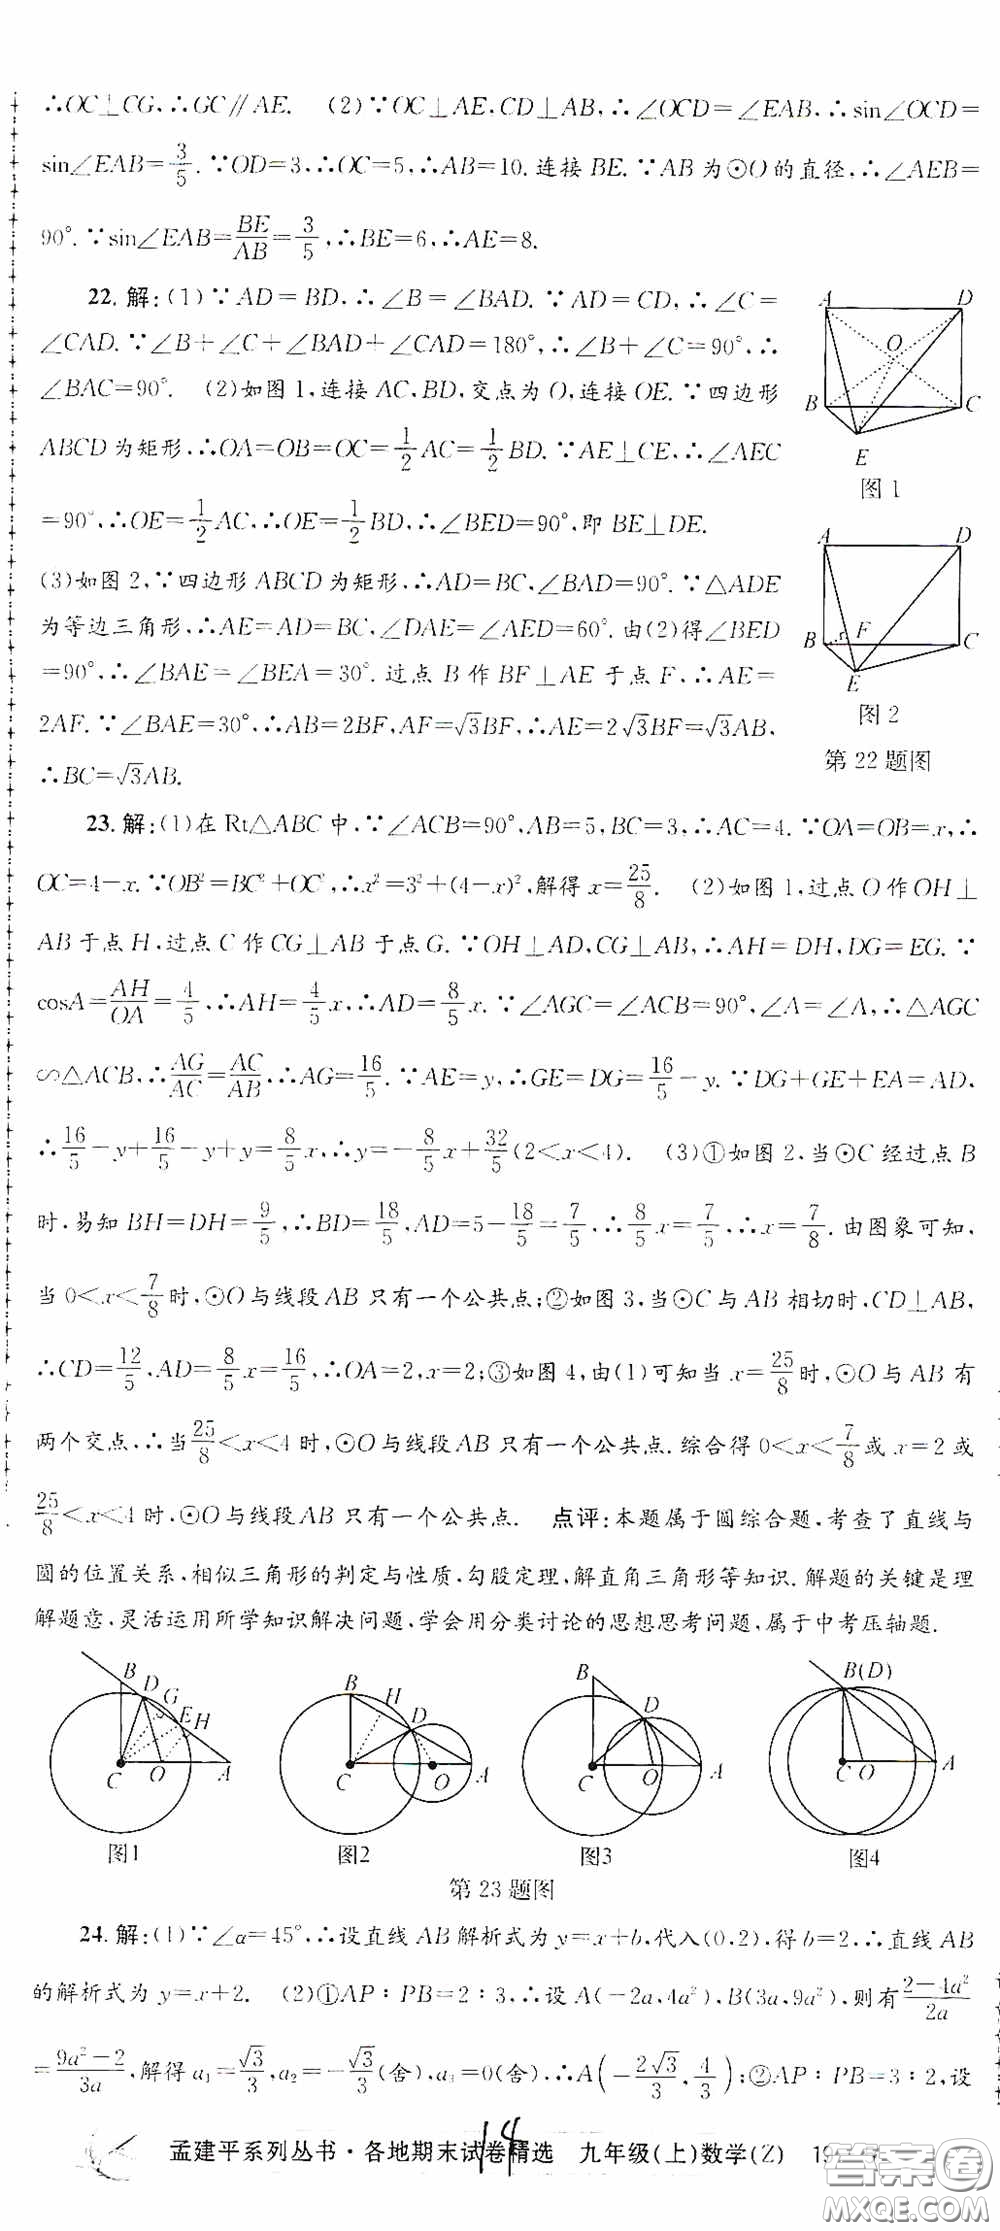 ∴OC⊥CG,∴GC∥AE. (2)∵OC⊥AE,CD⊥AB,∴∠OCD=∠EAB,∴sin∠OCD=
sin∠EAB=3/5.∵OD=3,∴OC=5,∴AB=10.连接BE.∵AB为⊙O的直径,∴∠AEB=
90°.∵sin∠EAB=BE/AB=3/5,∴BE=6,∴AE=8.
22.解:(1)∵AD=BD,∴∠B=∠BAD.∵AD=CD,∴∠C=
∠CAD.∵∠B+∠C+∠BAD+∠CAD=180°,∴∠B+∠C=90°,∴
∠BAC=90°. (2)如图1,连接AC,BD,交点为O,连接OE.∵四边形
ABCD为矩形,∴OA=OB=OC=1/2AC=1/2BD.∵AE⊥CE,∴∠AEC
=90°,∴OE=1/2AC,∴OE=1/2BD,∴∠BED=90°,即BE⊥DE.
(3)如图2,∵四边形ABCD为矩形,∴AD=BC,∠BAD=90°.∵△ADE
为等边三角形,∴AE=AD=BC,∠DAE=∠AED=60°.由(2)得∠BED
=90°,∴∠BAE=∠BEA=30°.过点B作BF⊥AE于点F,∴AE=
2AF.∵∠BAE=30°,∴AB=2BF,AF=√3BF,∴AE=2√3BF=√3AB,
∴BC=√3AB.
A D O B C E
图1
A D B F C E
图2
第22题图
23.解:(1)在Rt△ABC中,∵∠ACB=90°,AB=5,BC=3,∴AC=4.∵OA=OB=x,∴
OC=4-x.∵OB²=BC²+OC²,∴x²=3²+(4-x)²,解得x=25/8. (2)如图1,过点O作OH⊥
AB于点H,过点C作CG⊥AB于点G.∵OH⊥AD,CG⊥AB,∴AH=DH,DG=EG.∵
cosA=AH/OA=4/5,∴AH=4/5x,∴AD=8/5x.∵∠AGC=∠ACB=90°,∠A=∠A,∴△AGC
∽△ACB,∴AG/AC=AC/AB,∴AG=16/5.∵AE=y,∴GE=DG=16/5-y.∵DG+GE+EA=AD,
∴16/5-y+16/5-y+y=8/5x,∴y=-8/5x+32/5(2<x<4). (3)①如图2,当⊙C经过点B
时,易知BH=DH=9/5,∴BD=18/5,AD=5-18/5=7/5,∴8/5x=7/5,∴x=7/8.由图象可知,
当0<x<7/8时,⊙O与线段AB只有一个公共点;②如图3,当⊙C与AB相切时,CD⊥AB,
∴CD=12/5,AD=8/5x=16/5,∴OA=2,x=2;③如图4,由(1)可知当x=25/8时,⊙O与AB有
两个交点,∴当25/8<x<4时,⊙O与线段AB只有一个公共点.综合得0<x<7/8或x=2或
25/8<x<4时,⊙O与线段AB只有一个公共点. 点评:本题属于圆综合题,考查了直线与
圆的位置关系,相似三角形的判定与性质,勾股定理,解直角三角形等知识.解题的关键是理
解题意,灵活运用所学知识解决问题,学会用分类讨论的思想思考问题,属于中考压轴题.
B D G E H C O A
图1
B H D C O A
图2
B D C O A
图3
B(D) C O A
图4
第23题图
24.解:(1)∵∠α=45°,∴设直线AB解析式为y=x+b,代入(0,2),得b=2,∴直线AB
的解析式为y=x+2. (2)①AP∶PB=2∶3,∴设A(-2a,4a²),B(3a,9a²),则有2-4a²/2a
=9a²-2/3a,解得a₁=√3/3,a₂=-√3/3(舍),a₃=0(舍).∴A(-2√3/3,4/3);②AP∶PB=3∶2,设
孟建平系列丛书·各地期末试卷精选 九年级(上)数学(Z)
14
答案卷
MXQE.COM